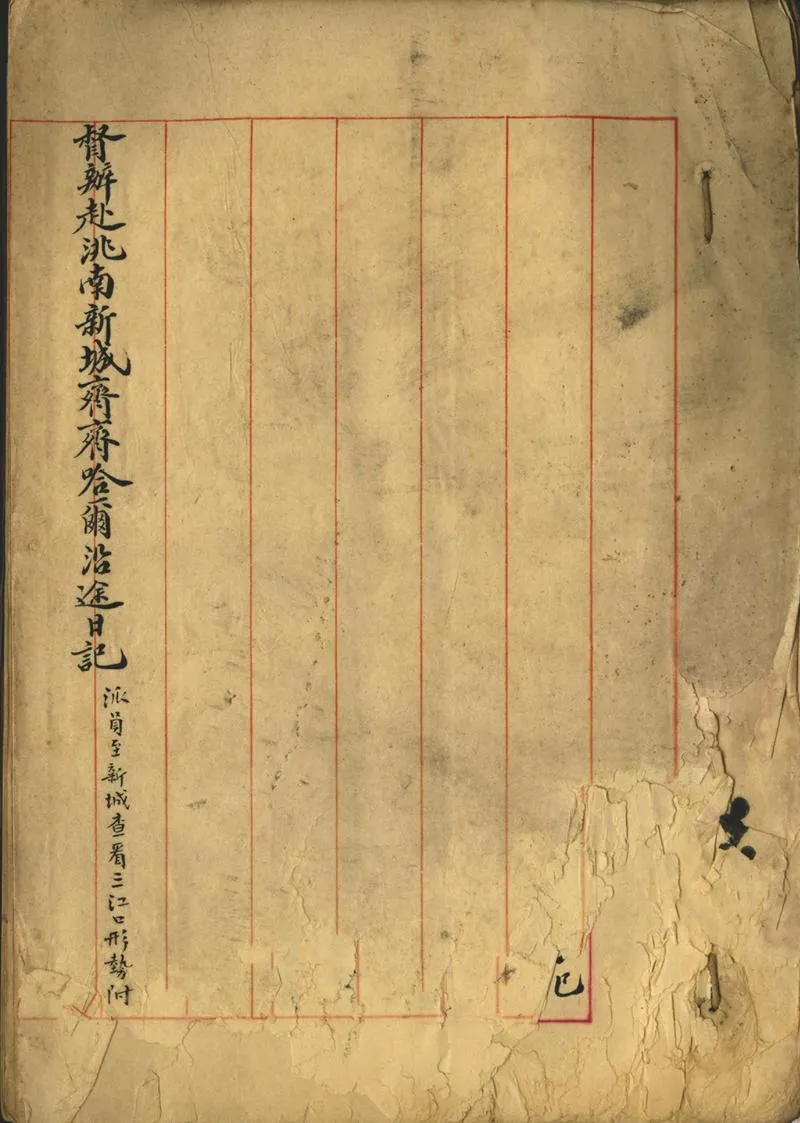 督辦赴洮南新城齊齊哈爾沿途日記
派員至新城查看三江口形勢附